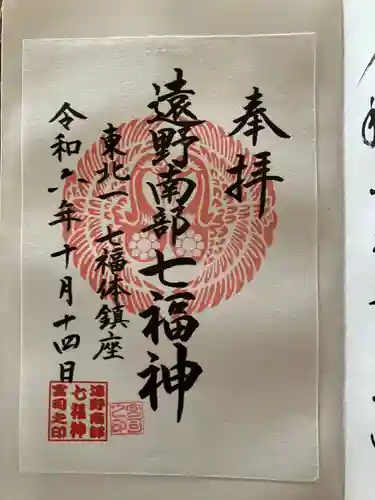 奉拝
遠野南部七福神
東北一七福体鎮座
令和六年十月十四日
遠野南部
七福神
宮司之印